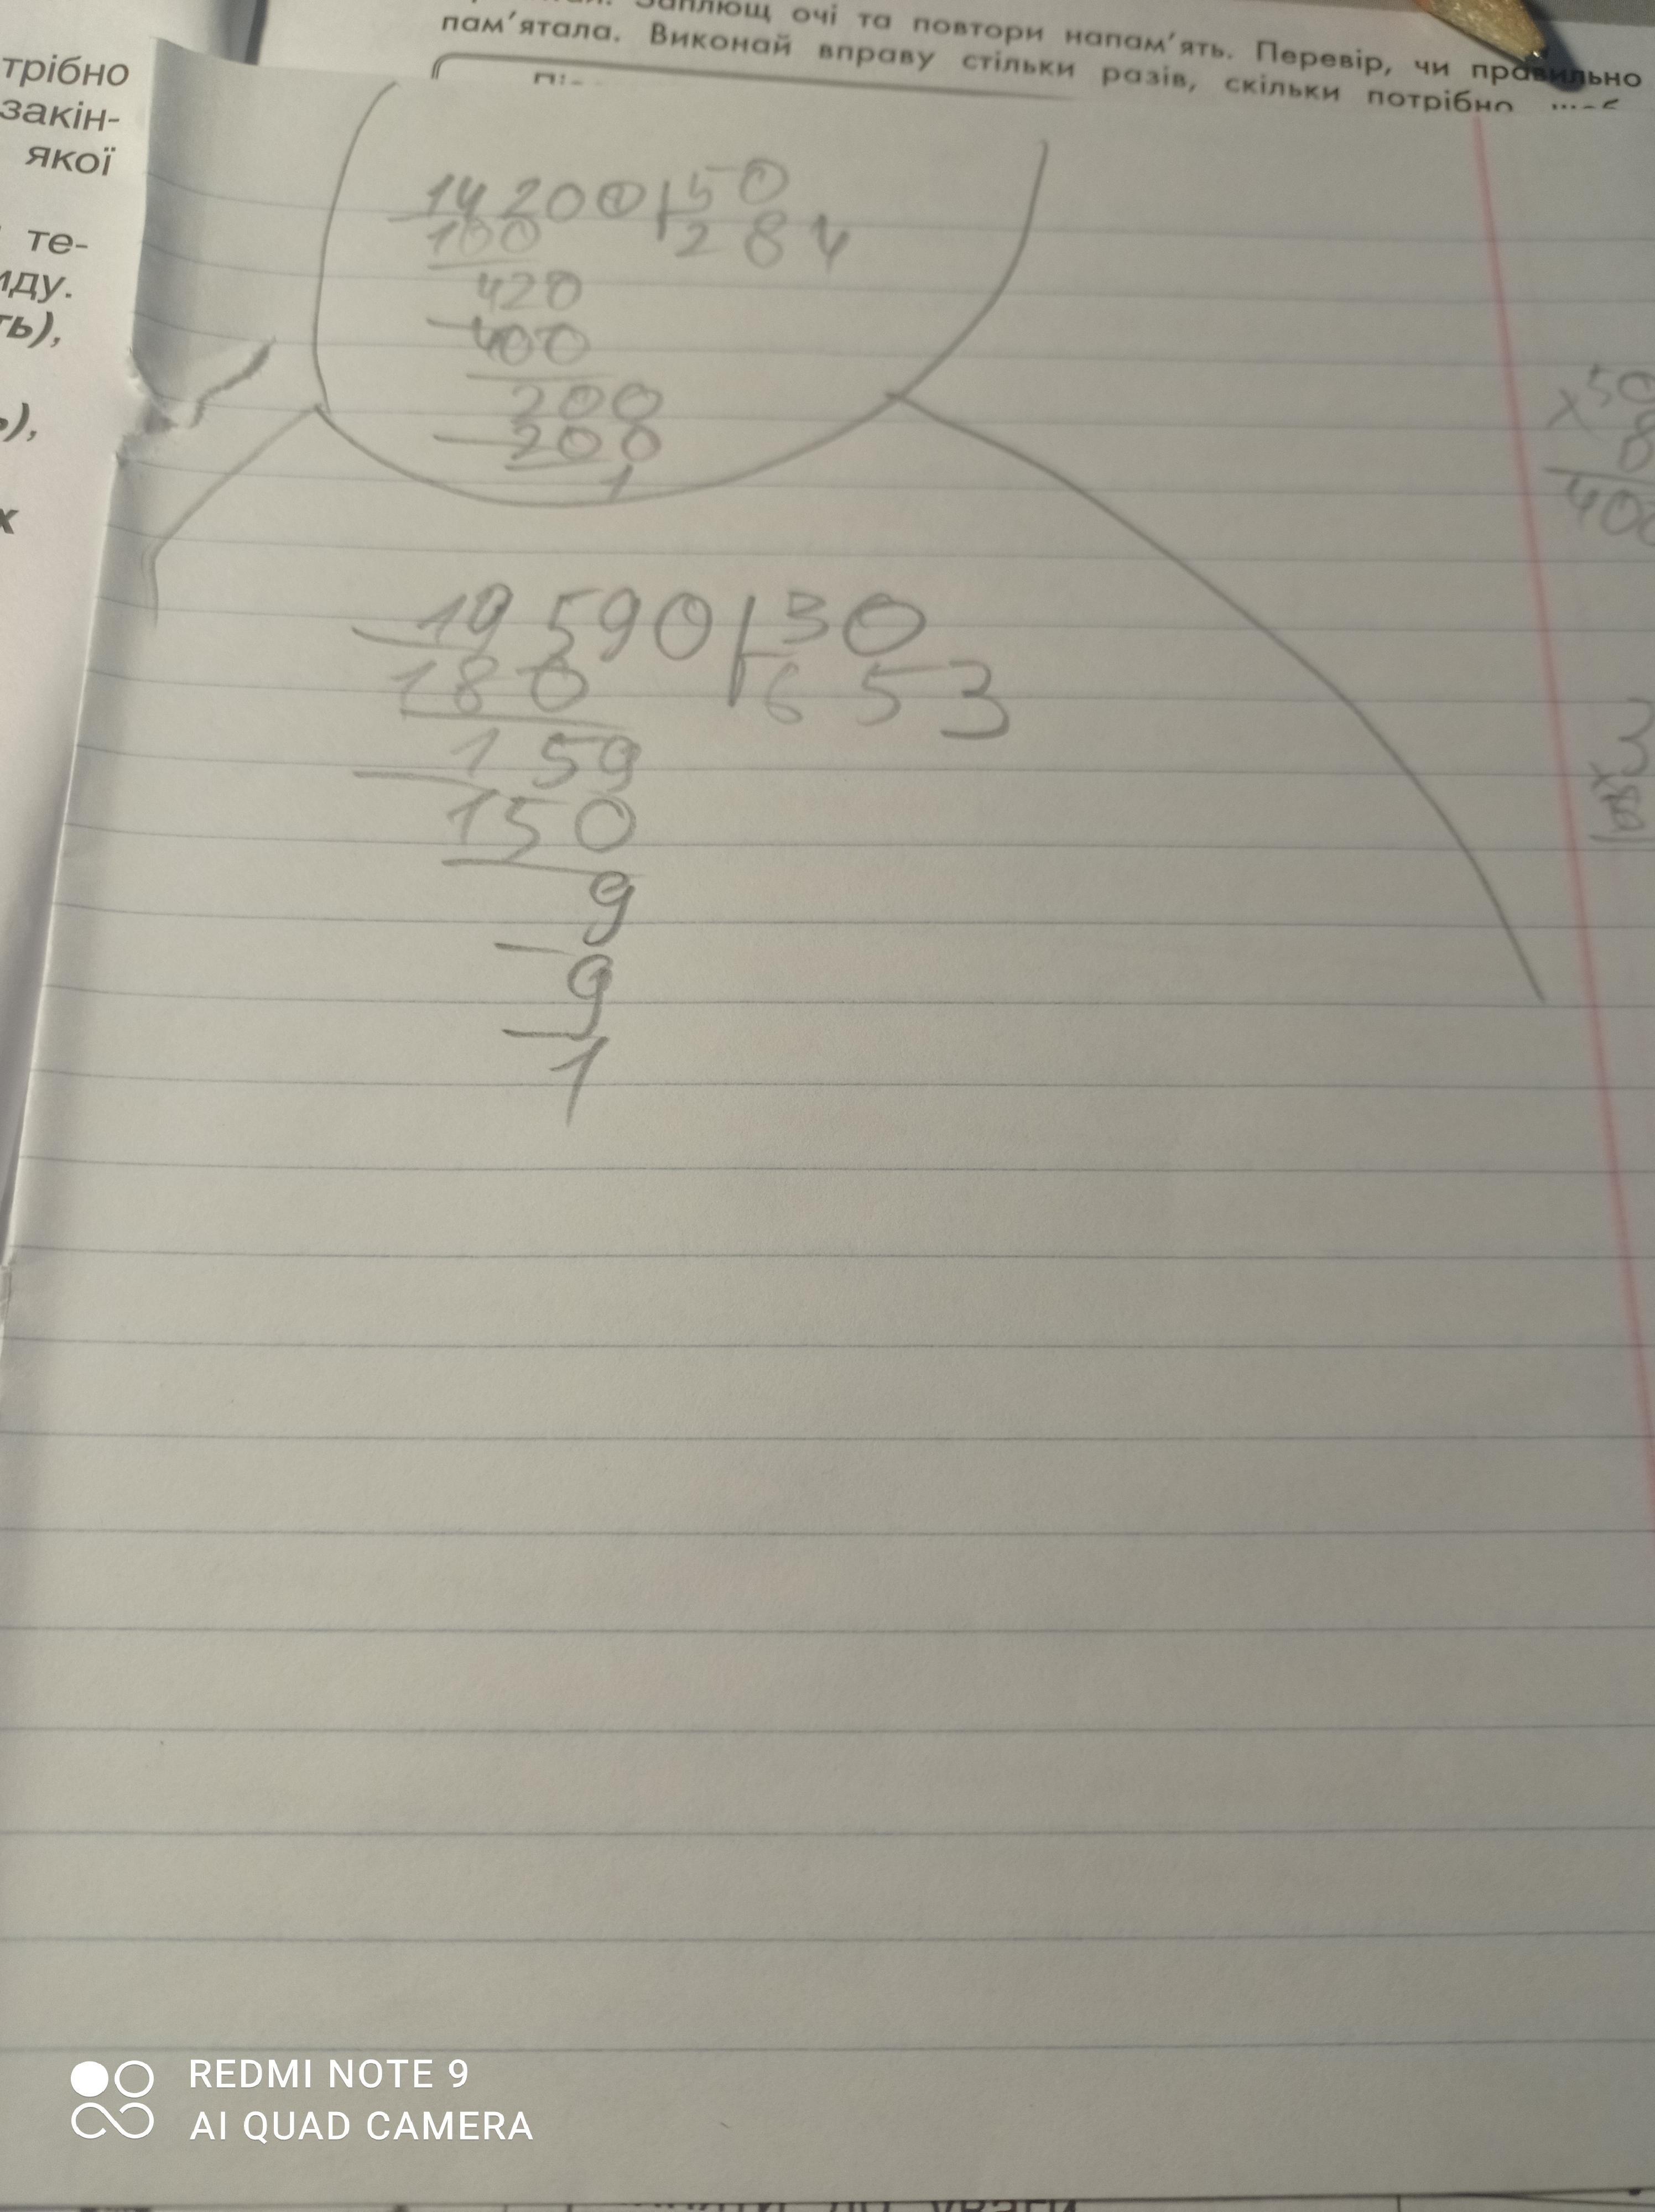 очі та повтори напам'ять. Перевір, чи правильно
пам'ятала. Виконай вправу стільки разів, скільки потрібно
трібно
закін-
якої
те-
иду.
ть),
14200 50
100 284
420
400
200
200
1
50
× 8
400
19590 30
180 653
159
150
9
9
1
REDMI NOTE 9
AI QUAD CAMERA